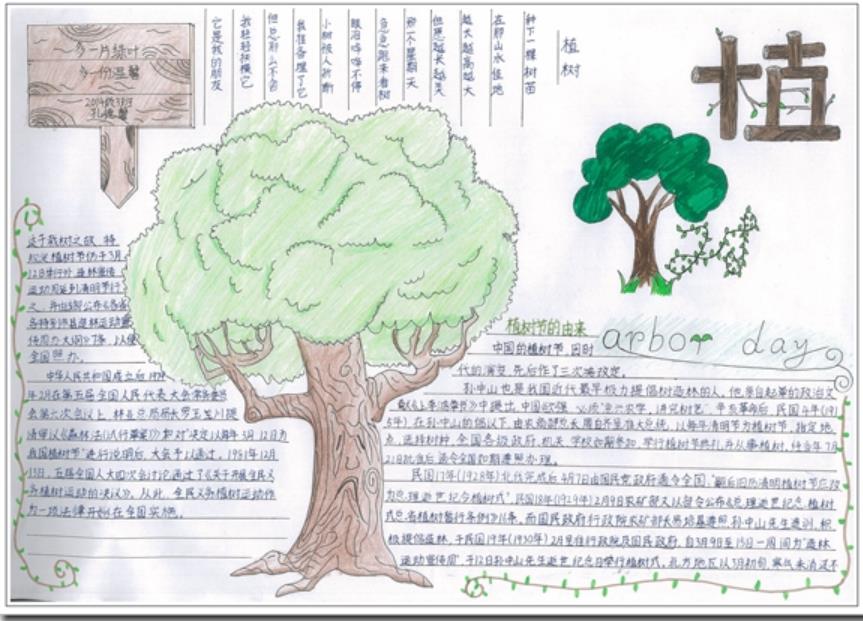 多一片绿叶
多一份温馨
植树
种下一棵树苗
在那山水佳地
越大越高越大
但愿越长越美
那一个星期天
急急跑来看树
眼泪哗哗不停
小树被人折断
我轻轻扶模它
它是我的朋友
植
树
植树节的由来
arbor day
中国的植树节,因时
代的演变,先后作了三次改定。
孙中山也是我国近代最早极力提倡植树造林的人。他亲自起草的政治文
献《上李鸿章书》中提出,中国欲强,必须"急兴农学,讲究树艺"。辛亥革命后,民国4年(191
5年)在孙中山的倡议下,由农商部总长周自齐呈准大总统,以每年清明节为植树节,指定地
点,选择树种,全国各级政府,机关,学校如期参加,举行植树节典礼并从事植树,经当年7月
21日批准后通令全国如期遵照办理。
民国17年(1928年)北伐完成后4月7日由国民党政府通令全国:"嗣后旧历清明植树节应改
为总理逝世纪念植树式"。民国18年(1929年)2月9日农矿部又以部令公布《总理逝世纪念植树
式各省植树暂行条例》16条。而国民政府行政院农矿部长易培基遵照孙中山先生遗训,积
极提倡造林,于民国19年(1930年)2月呈准行政院及国民政府,自3月9日至15日一周间为"造林
运动宣传周",于12日孙中山先生逝世纪念日举行植树式。北方地区以3月初旬,寒气未消还不
适于栽树之故,特
规定植树节仍于3月
12日举行外,造林宣传
运动周延到清明节行
之,并由部公布《各省
全国照办。
中华人民共和国成立后,1979
年2月在第五届全国人民代表大会常务委员
会第六次会议上,林业总局局长罗玉川提
请审议《森林法(试行草案)》和"决定以每年3月12日为
我国植树节"进行说明后,大会予以通过。1981年12月
13日,五届全国人大四次会议讨论通过了《关于开展全民义
务植树运动的决议》。从此,全民义务植树运动作
为一项法律开始在全国实施。